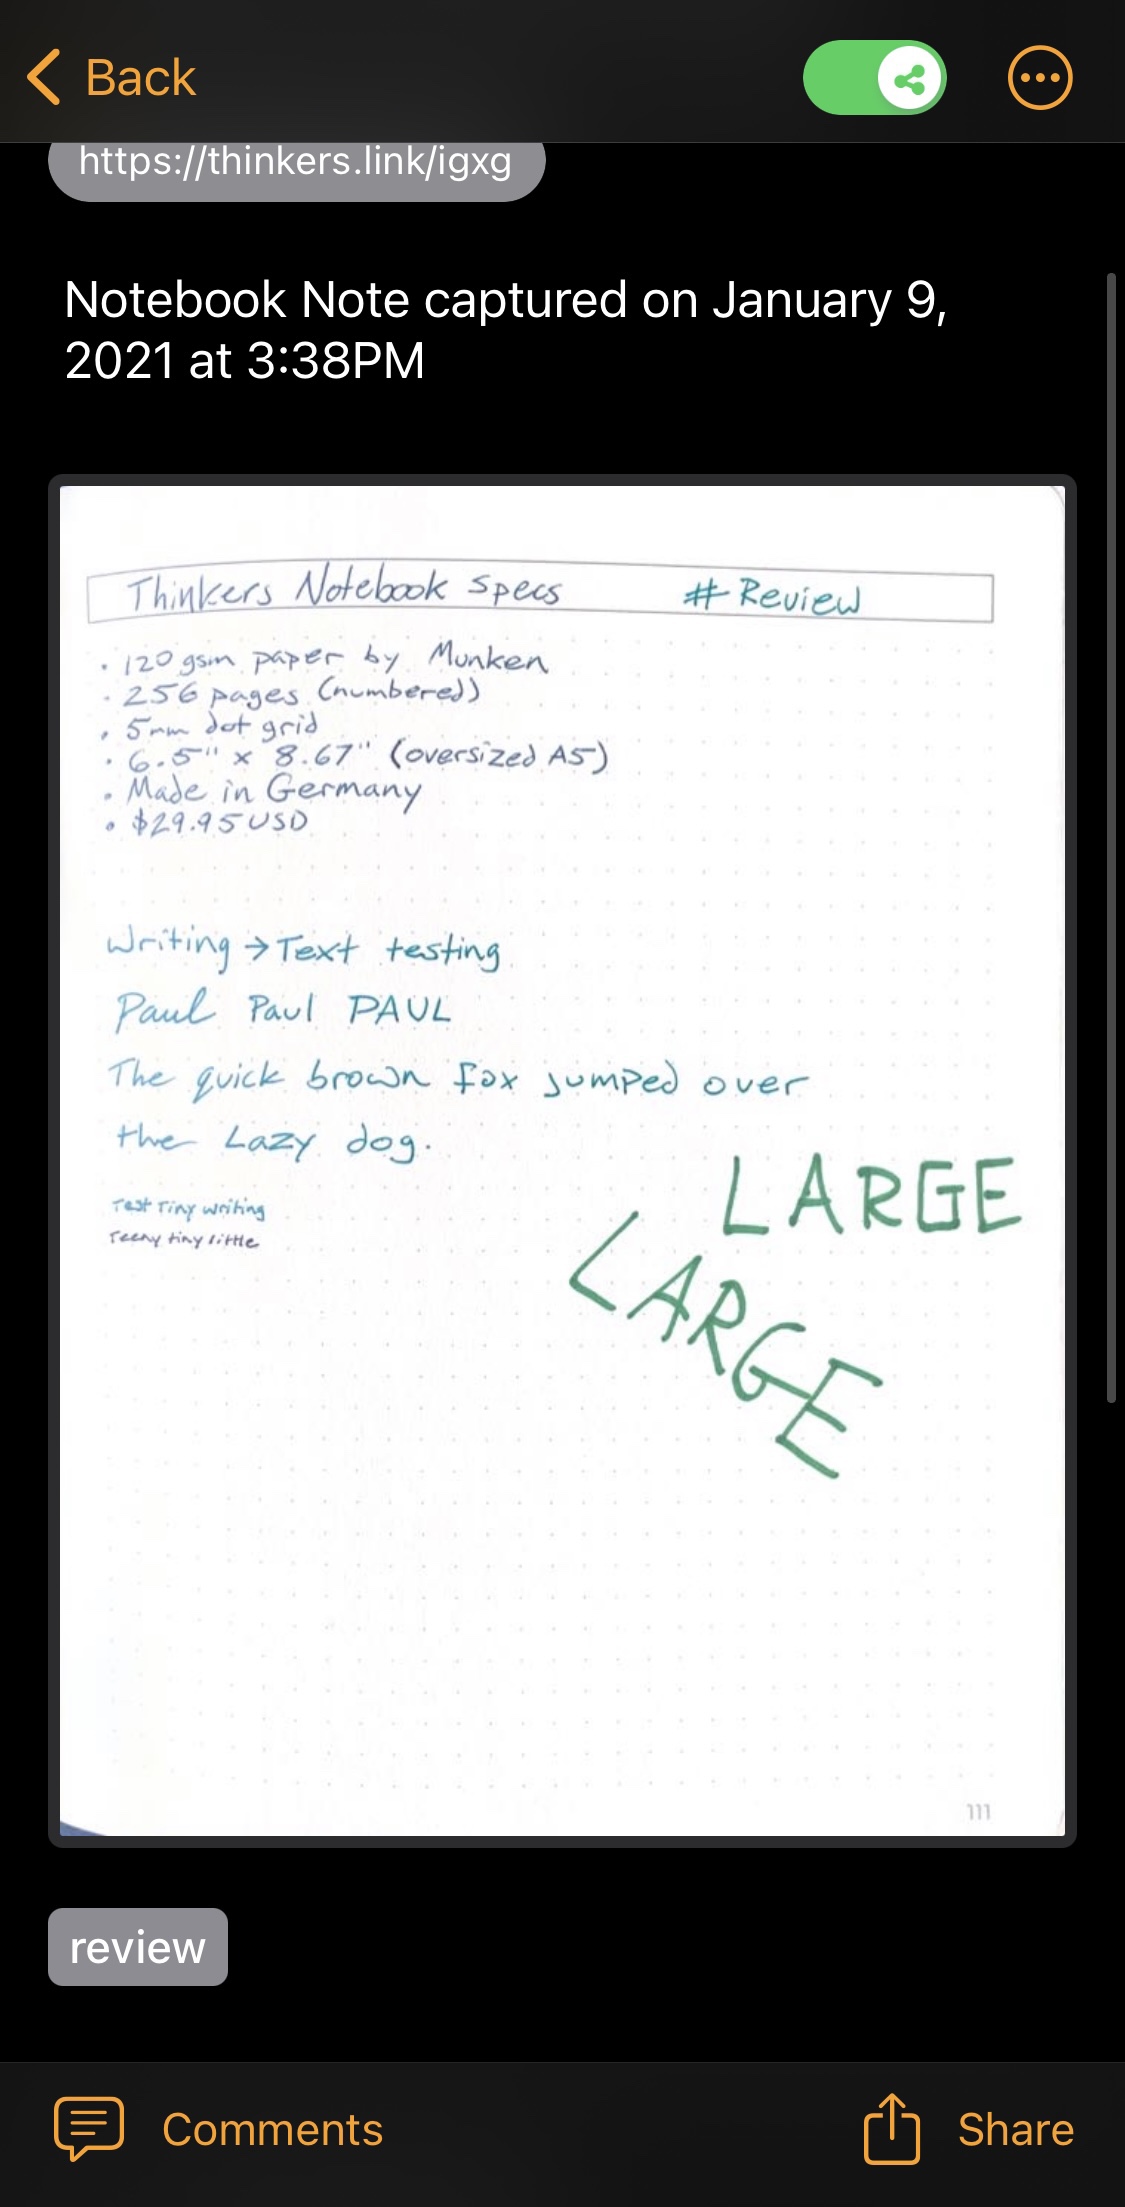 Back
https://thinkers.link/igxg
Notebook Note captured on January 9,
2021 at 3:38PM
Thinkers Notebook Specs # Review
• 120 gsm paper by Munken
• 256 pages (numbered)
• 5mm dot grid
• 6.5" x 8.67" (oversized A5)
• Made in Germany
• $29.95 USD
Writing → Text testing
Paul Paul PAUL
The quick brown fox jumped over
the Lazy dog.
Test Tiny writing
Teeny tiny little
LARGE
LARGE
111
review
Comments
Share